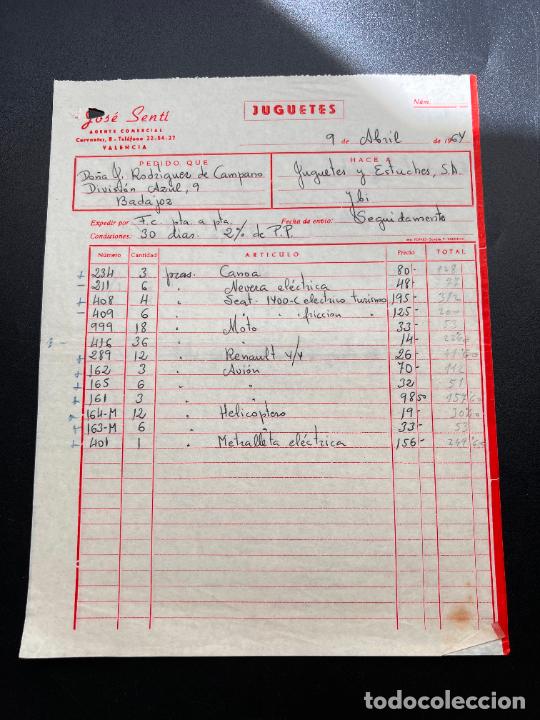 José Sentí
AGENTE COMERCIAL
Cervantes, 8 - Teléfono 22-54-27
VALENCIA
JUGUETES
Núm.
9 de Abril de 1964
PEDIDO QUE
Doña J. Rodriguez de Campano
División Azul, 9
Badajoz
HACE A
Juguetes y Estuches, S.A.
Ibi
Expedir por F.c. pta. a pta. Fecha de envío: Seguidamente
Condiciones: 30 dias. 2% de P.P.
Número Cantidad ARTICULO Precio TOTAL
234 3 pzas. Canoa 80- 128
211 6 " Nevera eléctrica 48-
408 4 " Seat-1400-C electrico turismo 195- 312
409 6 " " " friccion " 125- 200
999 18 " Moto 33- 53
416 36 " " 14-
289 12 " Renault 4/4 26-
162 3 " Avión 70- 112
165 6 " " 32 51
161 3 " " 98 50 157 60
164-M 12 " Helicoptero 19- 30
163-M 6 " " 33- 53
401 1 " Metralleta eléctrica 156- 249 60
todocoleccion.net